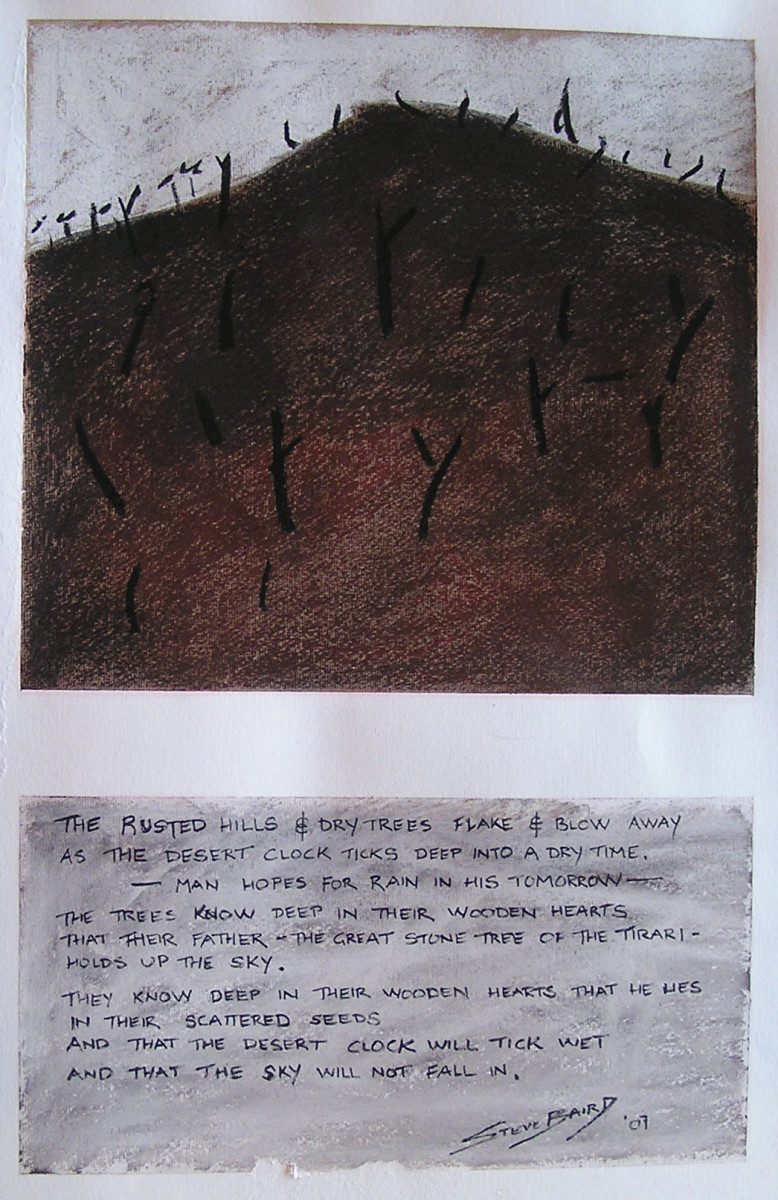 THE RUSTED HILLS & DRY TREES FLAKE & BLOW AWAY
AS THE DESERT CLOCK TICKS DEEP INTO A DRY TIME.
— MAN HOPES FOR RAIN IN HIS TOMORROW —
THE TREES KNOW DEEP IN THEIR WOODEN HEARTS
THAT THEIR FATHER - THE GREAT STONE TREE OF THE TIRARI -
HOLDS UP THE SKY.
THEY KNOW DEEP IN THEIR WOODEN HEARTS THAT HE LIES
IN THEIR SCATTERED SEEDS
AND THAT THE DESERT CLOCK WILL TICK WET
AND THAT THE SKY WILL NOT FALL IN.
STEVE BAIRD '07